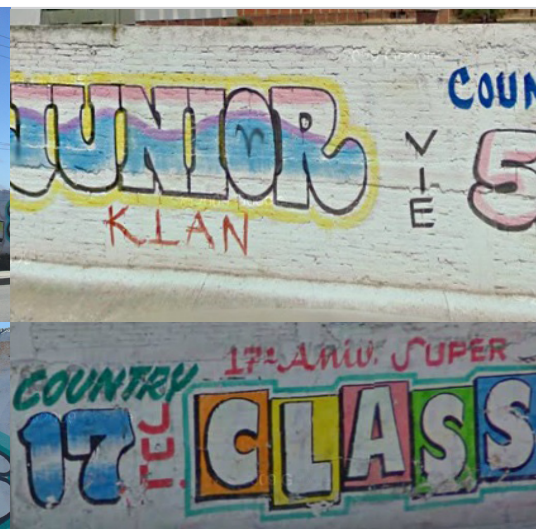 JUNIOR
KLAN
VIE
COUN
5
17º Aniv. SUPER
COUNTRY
17
CLASS